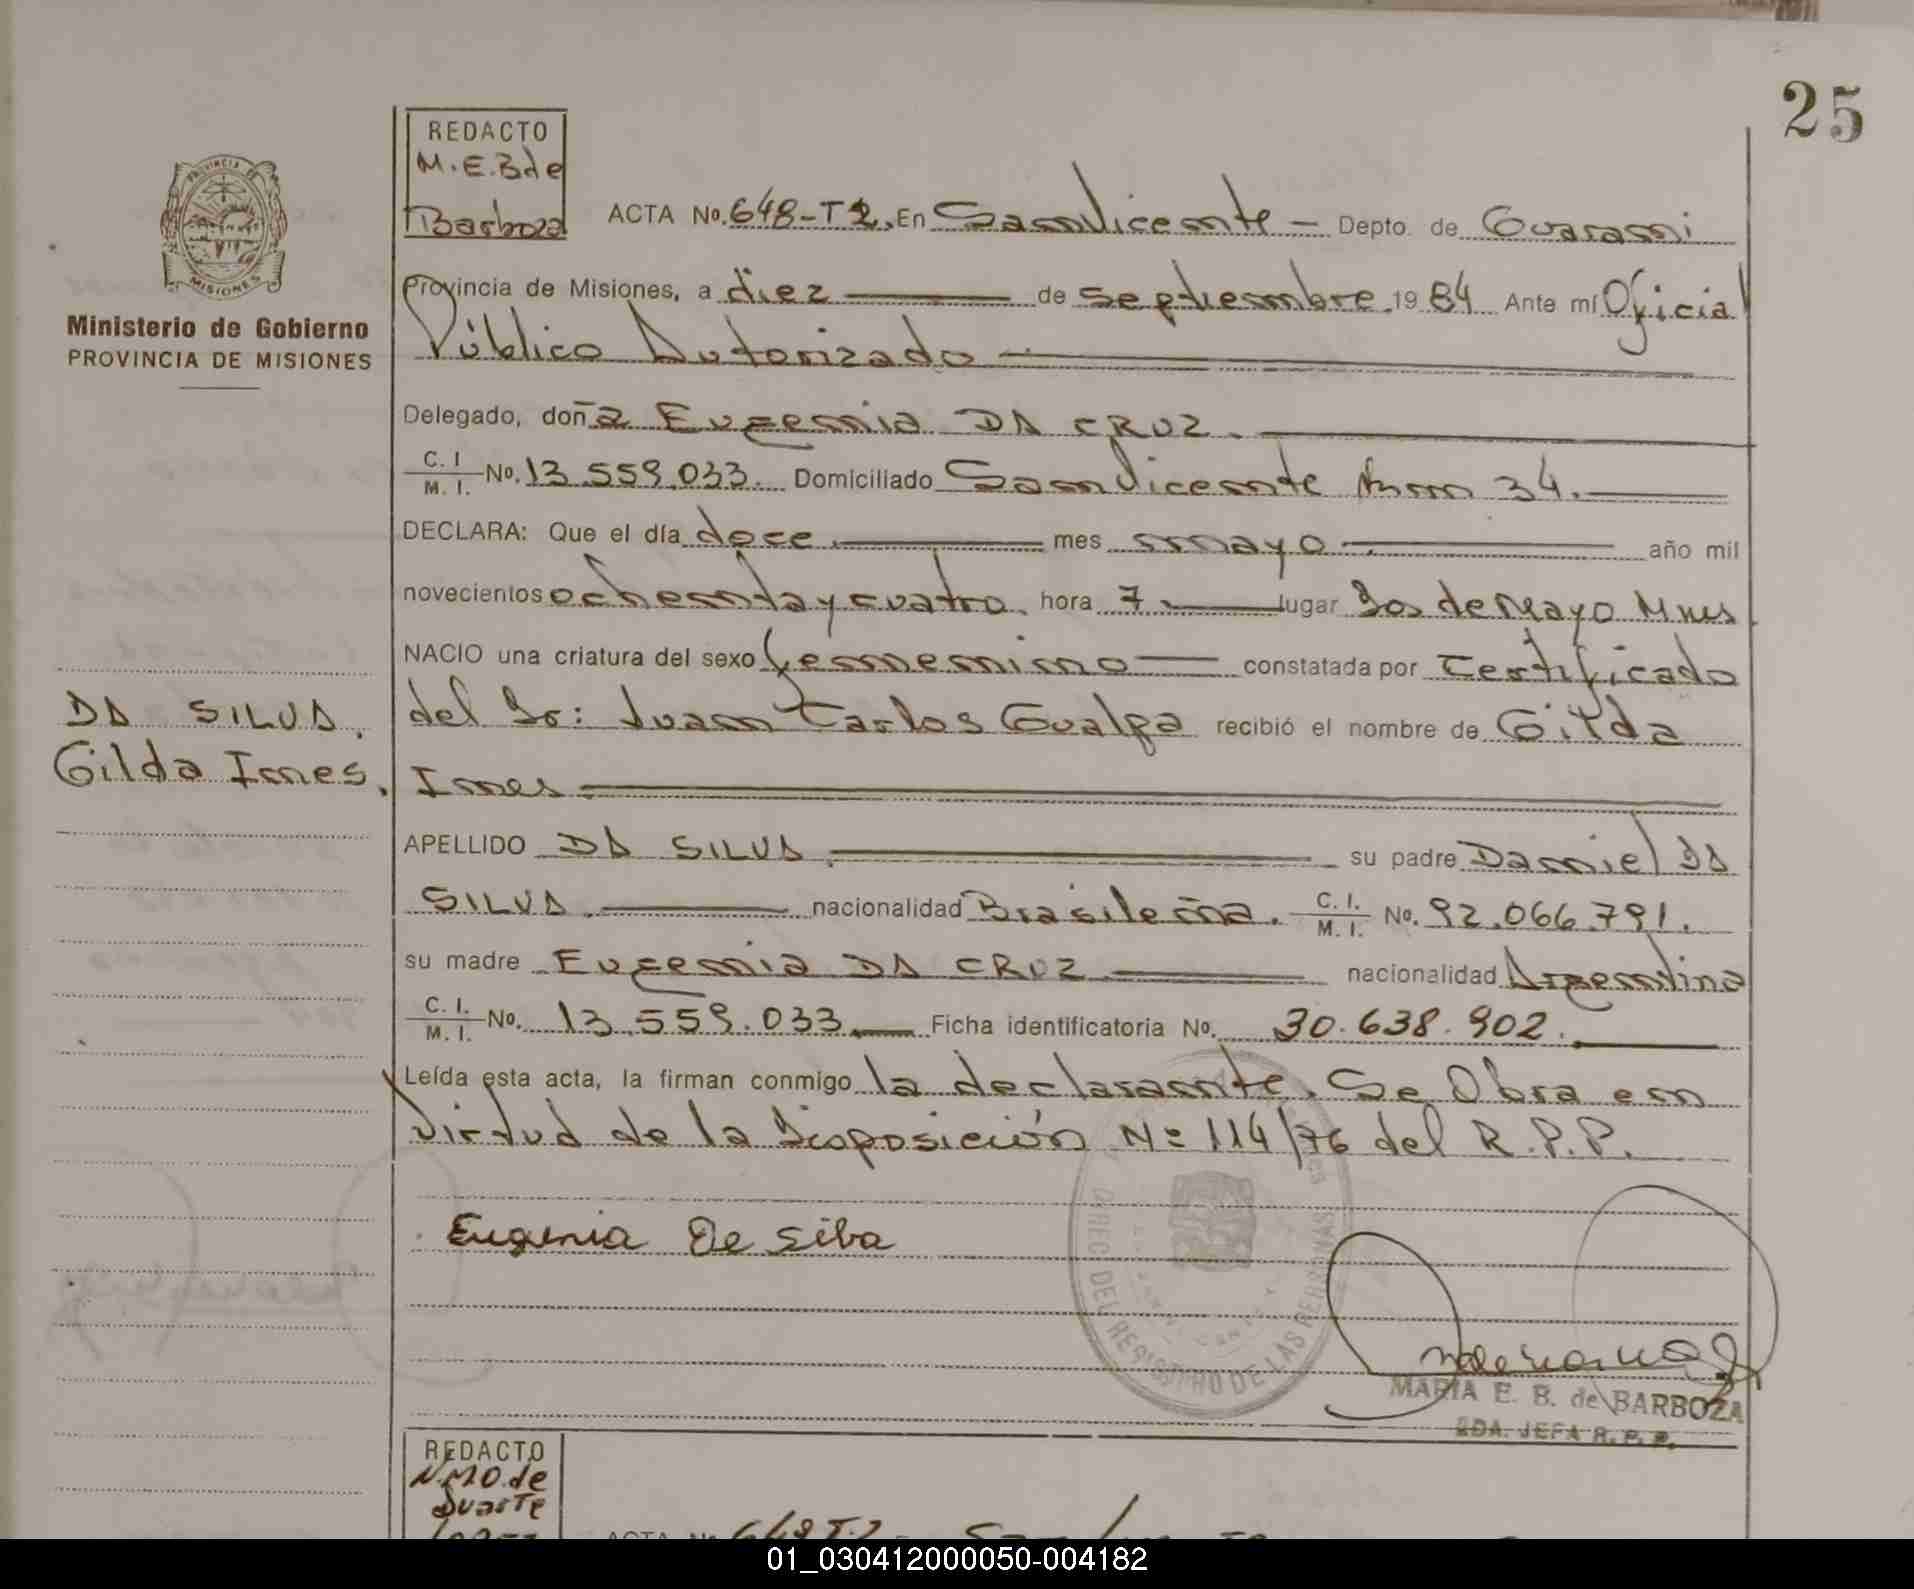 25
REDACTO
M.E.B de
Barboza
ACTA No. 648-T2. En San Vicente - Depto. de Guarani
Provincia de Misiones, a diez de septiembre 19 84 Ante mí Oficial
Público Autorizado
Delegado, doña Eugenia DA CRUZ.
C. I
M. I. No. 13.559.033. Domiciliado San Vicente km 34.
DECLARA: Que el día doce mes mayo año mil
novecientos ochenta y cuatro hora 7 lugar 2 de Mayo Mnes
NACIO una criatura del sexo femenino constatada por Certificado
del Dr: Juan Carlos Gualpa recibió el nombre de Gilda
Ines
APELLIDO DA SILVA su padre Daniel DA
SILVA nacionalidad Brasileña. C. I.
M. I. No. 92.066.791.
su madre Eugenia DA CRUZ nacionalidad Argentina
C. I.
M. I. No. 13.559.033 Ficha identificatoria No. 30.638.902.
Leída esta acta, la firman conmigo la declarante. Se Obra en
virtud de la Disposición Nº 114/76 del R.P.P.
Eugenia De Silva
MARIA E. B. de BARBOZA
2DA. JEFA R. P. P.
DIREC. DEL REGISTRO DE LAS PERSONAS
PROVINCIA DE
MISIONES
Ministerio de Gobierno
PROVINCIA DE MISIONES
DA SILVA.
Gilda Ines.
REDACTO
N.M.O. de
Duarte
ACTA No 649 T-2
01_030412000050-004182